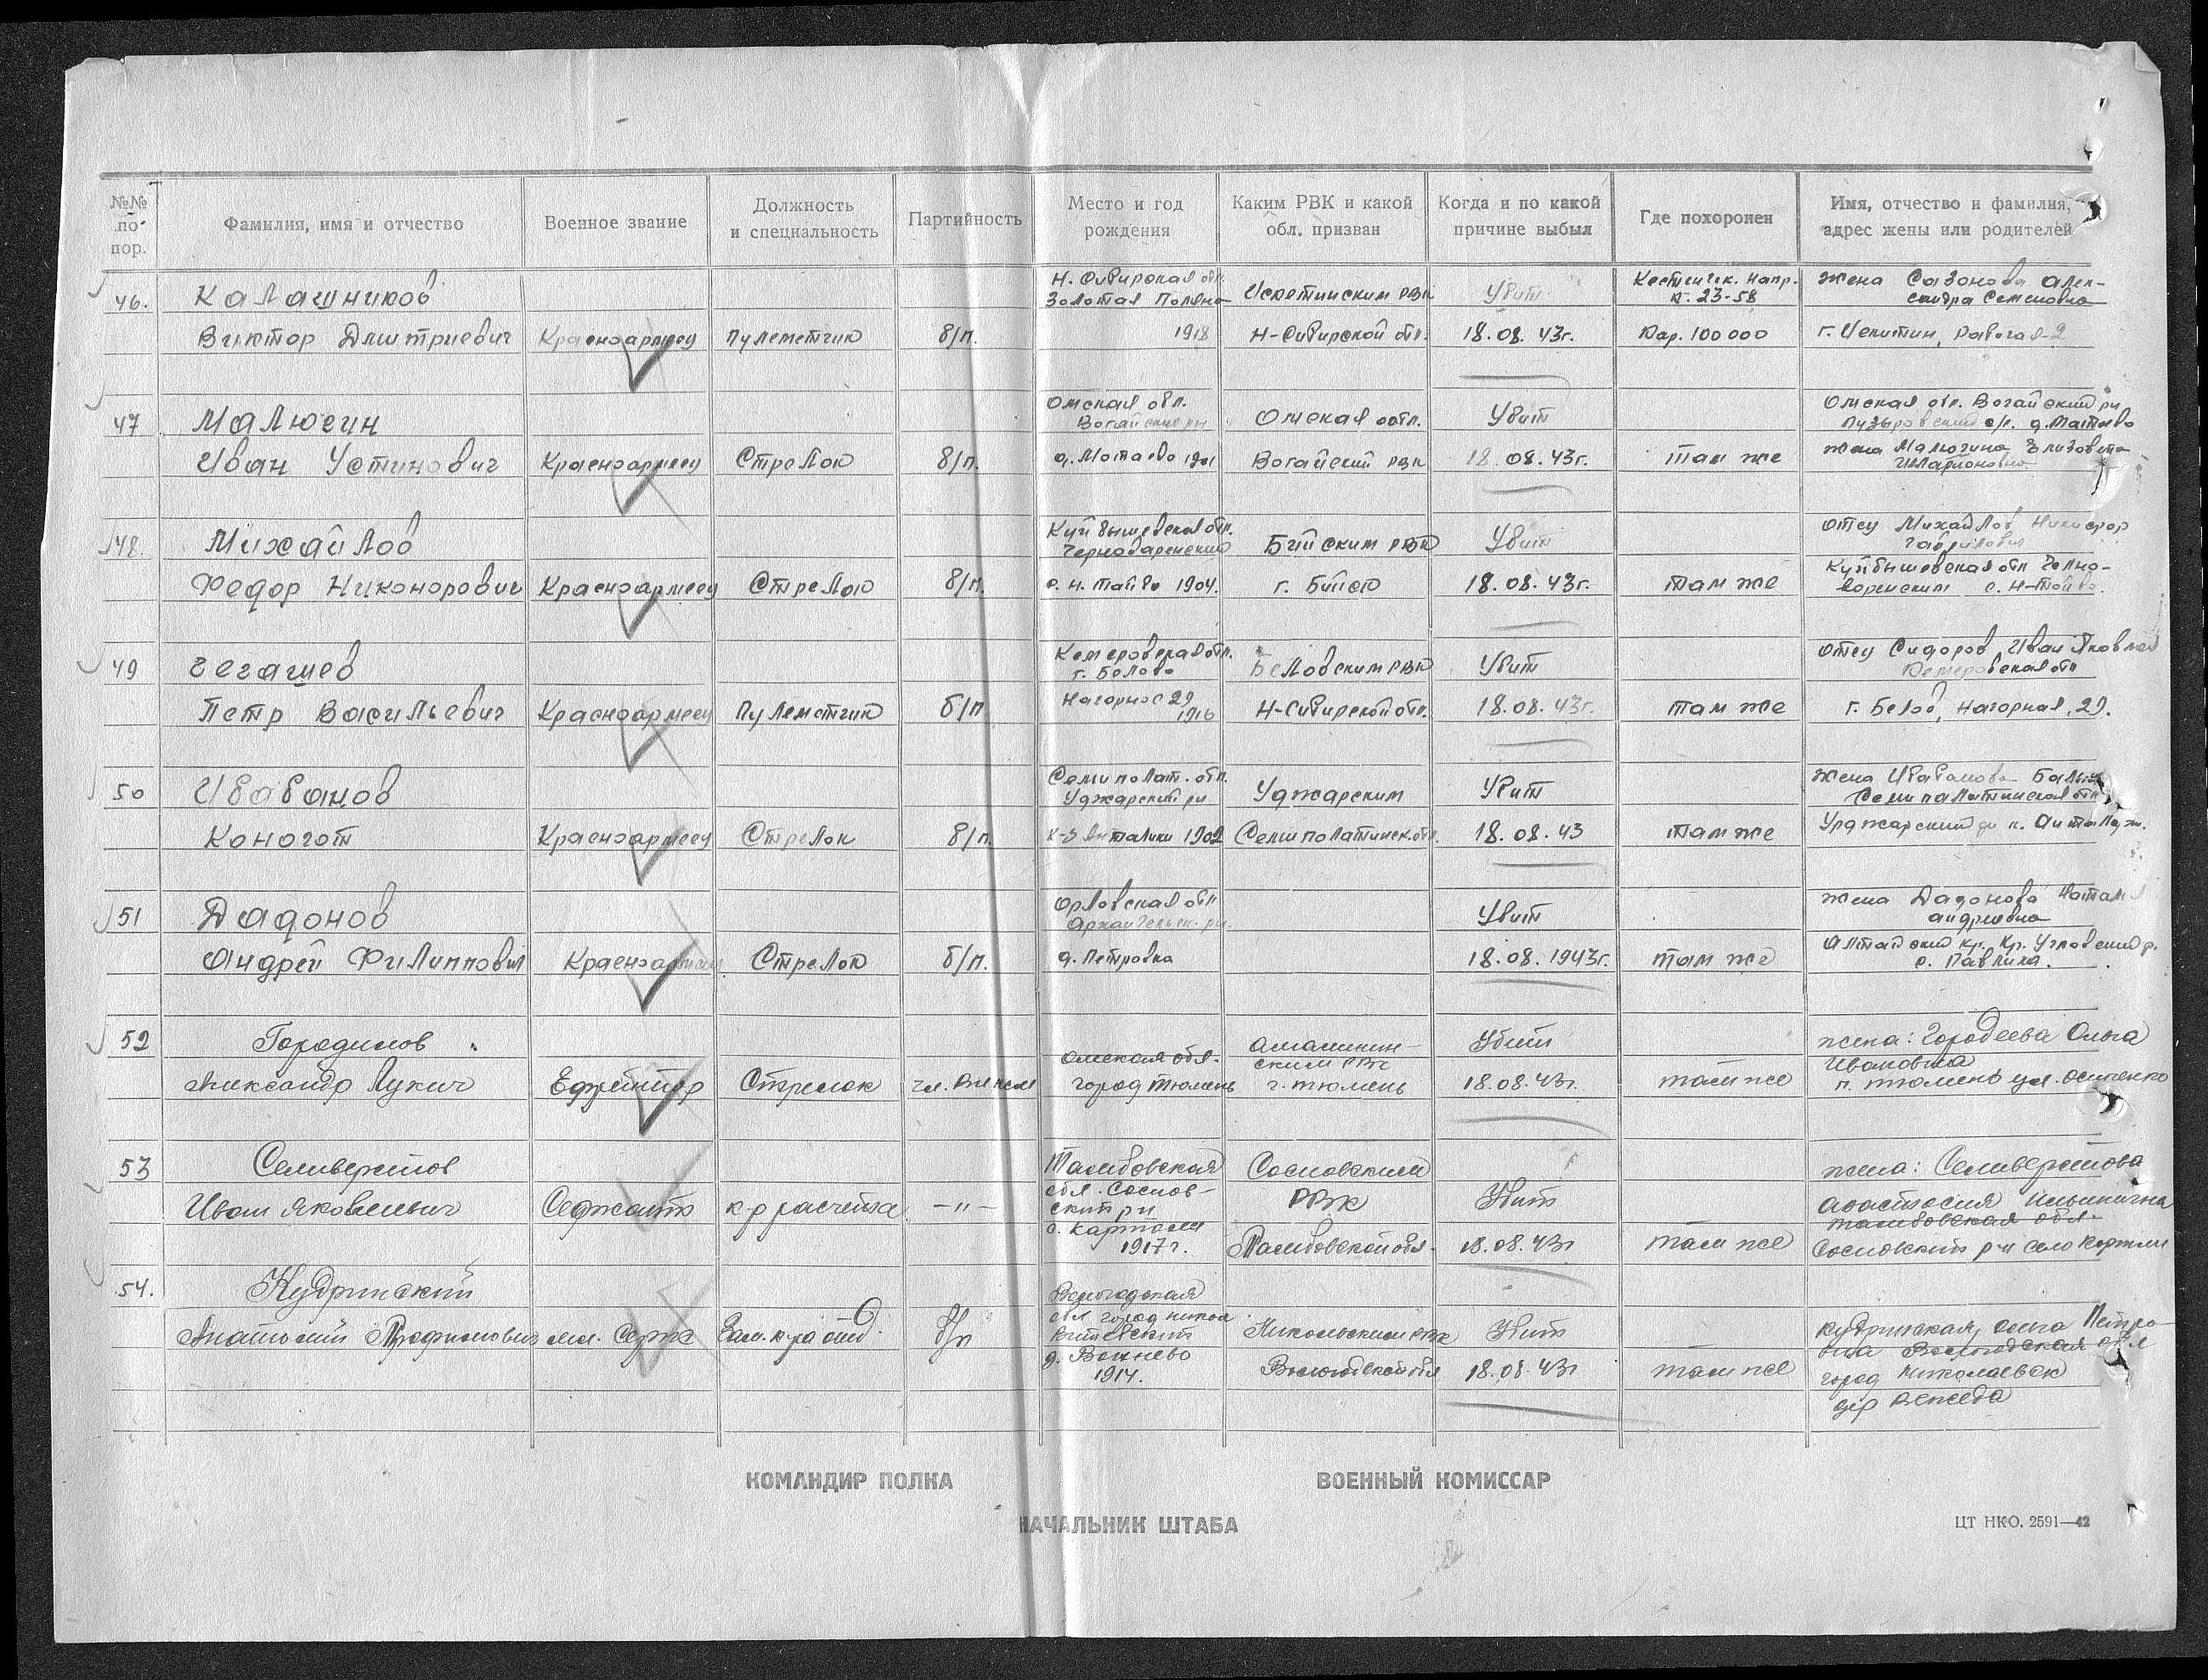 №№ по пор.
Фамилия, имя и отчество
Военное звание
Должность и специальность
Партийность
Место и год рождения
Каким РВК и какой обл. призван
Когда и по какой причине выбыл
Где похоронен
Имя, отчество и фамилия, адрес жены или родителей
46. Калашников Н. Сибирская обл. Золотая Поляна Искетимским РВК Убит Кестеньгск. напр. К. 23-58 жена Сазонова Александра Семеновна
Виктор Дмитриевич Красноармеец Пулеметчик б/п. 1918 Н-Сибирской обл. 18.08.43г. Кар. 100 000 г. Искитим, Рабочая-2
47 Малюгин Омская обл. Вогайский рн Омская обл. Убит Омская обл. Вогайский рн
Иван Устинович Красноармеец Стрелок б/п. 1901 Вогайский рвк 18.08.43г. там же жена Малюгина Елизовета
48. Михайлов Куйбышевская обл. Бийским РВК Убит отец Михайлов
Федор Никонорович Красноармеец Стрелок б/п. 1904. г. Бийск 18.08.43г. там же Куйбышевская обл
49 Чегашев Кемеровская обл. г. Белово Беловским РВК Убит отец Сидоров Иван Кемеровская обл
Петр Васильевич Красноармеец Пулеметчик б/п Нагорное 29 1916 Н-Сибирской обл. 18.08.43г. там же г. Белов, Нагорная, 29.
50 Ибабанов Семиполат. обл. Уджарский рн Уджарским Убит жена Семипалатинская обл
Коногот Красноармеец Стрелок б/п. 1902 Семиполатинск. обл. 18.08.43 там же Урджарский рн
51 Дадонов Орловская обл Архангельск. рн. Убит жена Дадонова Наталя андреевна
Андрей Филиппович Красноармеец Стрелок б/п. д. Петровка 18.08.1943г. там же Алтайский кр. Угловский р.
52 Омская обл. Убит жена: Городеева Ольга Ивановна
Александр Лукич Ефрейтор Стрелок город Тюмень г. Тюмень 18.08.43г. там же г. Тюмень ул. Осипенко
53 Селиверстов Тамбовская обл. Сосновский рн Сосновским РВК Убит жена: Селиверстова
Иван Яковлевич Сержант к-р расчета —"— 1917г. Тамбовской обл. 18.08.43г там же Анастасия Ильинична Тамбовская обл. Сосновский р-н село
54. Кудринский Вологодская обл Никольским РВК Убит Кудринская, Ольга Петровна Вологодская обл
Анатолий мл. Серж б/п 1914. Вологодской обл 18.08.43г там же город Николаевск
КОМАНДИР ПОЛКА
ВОЕННЫЙ КОМИССАР
НАЧАЛЬНИК ШТАБА
ЦТ НКО. 2591—42